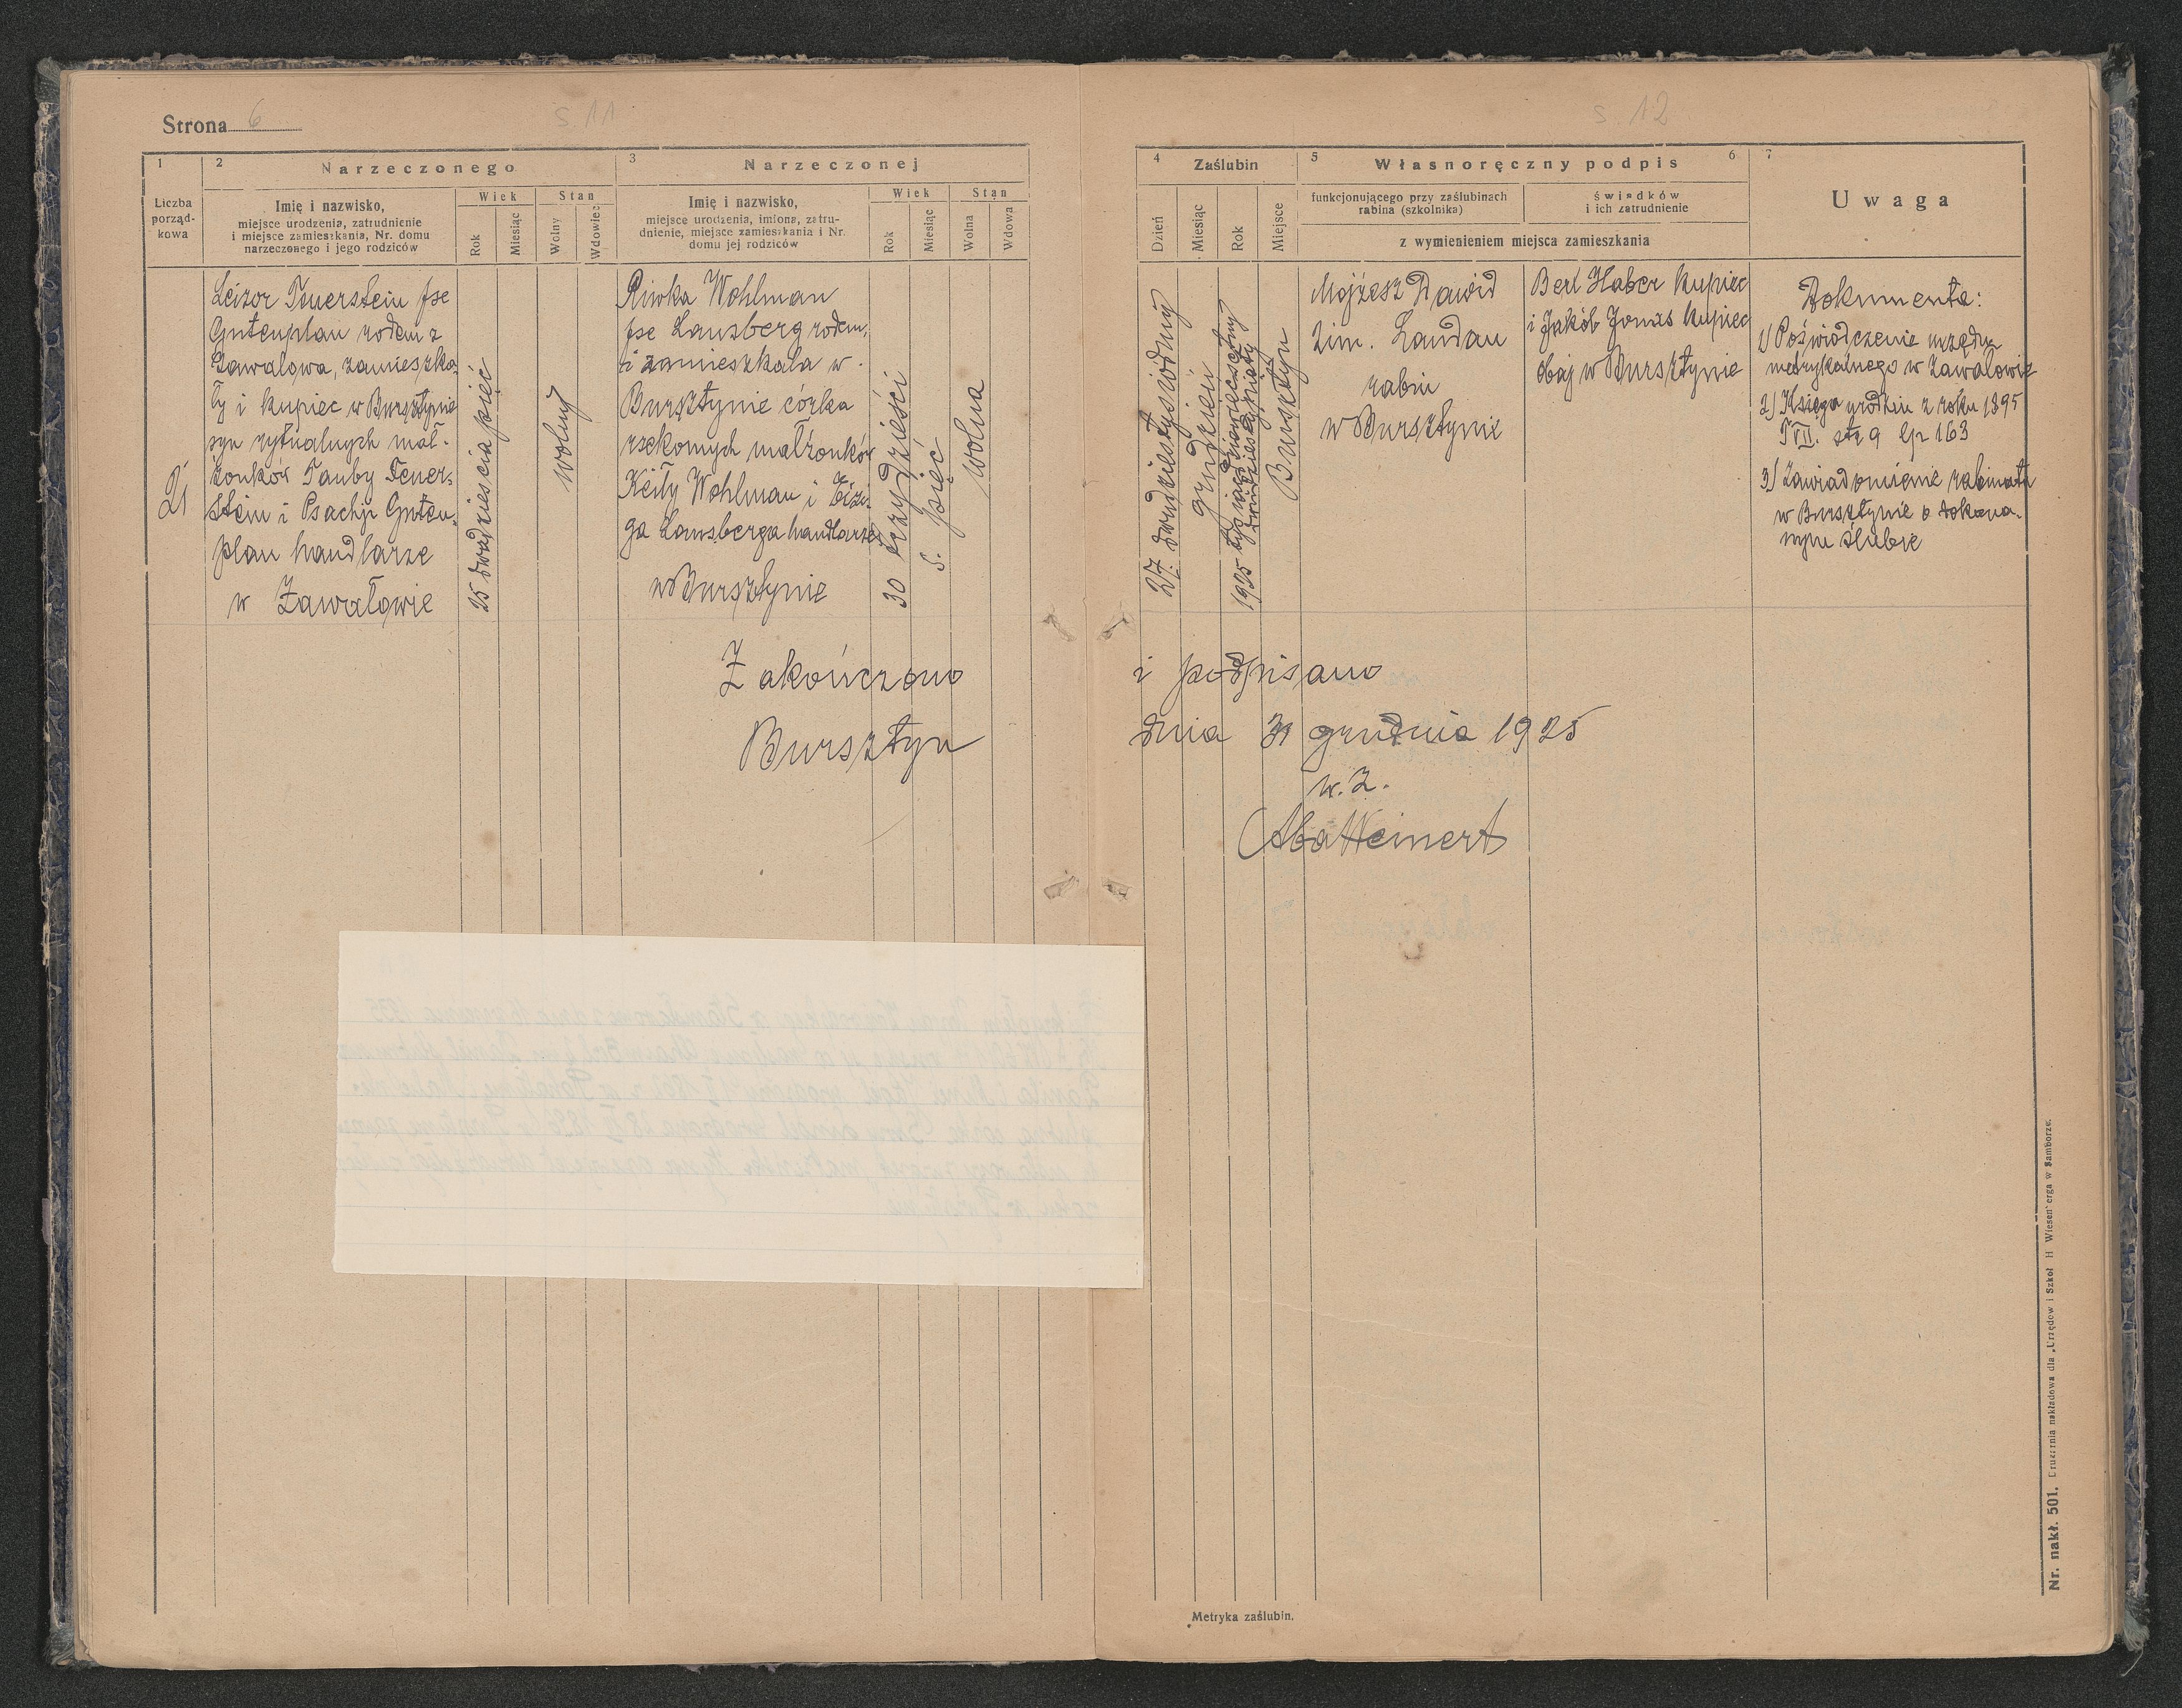 Strona 6
s 11
1
2 Narzeczonego
3 Narzeczonej
Liczba porząd-kowa
Imię i nazwisko,
miejsce urodzenia, zatrudnienie
i miejsce zamieszkania, Nr. domu
narzeczonego i jego rodziców
Wiek
Rok
Miesiąc
Stan
Wolny
Wdowiec
Imię i nazwisko,
miejsce urodzenia, imiona, zatru-
dnienie, miejsce zamieszkania i Nr.
domu jej rodziców
Wiek
Rok
Miesiąc
Stan
Wolna
Wdowa
21
Leizor Feuerstein fse
Gutenplan rodem z
Zawalowa, zamieszka-
ły i kupiec w Bursztynie
syn rytualnych mał-
żonków Tauby Feuer-
stein i Psachji Guten-
plan handlarze
w Zawałowie
25 dwadzieścia pięć
wolny
Riwka Wohlman
fse Lansberg rodem
i zamieszkala w
Bursztynie córka
rzekomych małżonków
Keily Wohlman i
ga Lansberga handlarze
w Bursztynie
30 trzydzieści
5. pięć
wolna
Zakończono
Bursztyn
s. 12
4 Zaślubin
5 Własnoręczny podpis 6
7
Uwaga
Dzień
Miesiąc
Rok
Miejsce
funkcjonującego przy zaślubinach
rabina (szkolnika)
świadków
i ich zatrudnienie
z wymienieniem miejsca zamieszkania
27. dwudziesty siódmy
grudzień
1925 tysiąc dziewięćsetny
dwudziesty piąty
Bursztyn
Mojżesz Dawid
zim. Landau
rabin
w Bursztynie
Berl Haber kupiec
i Jakób Jonas kupiec
obaj w Bursztynie
Dokumenta:
1) Poświadczenie urzędu
metrykalnego w Zawałowie
2) Księga urodzin z roku 1895
T VII. str 9 lp 163
3) Zawiadomienie rabinatu
w Bursztynie o dokona-
nym ślubie
i podpisano
dnia 31 grudnia 1925
w. z.
Aba Weinert
Metryka zaślubin.
Nr. nakł. 501. Drukarnia nakładowa dla „Urzędów i Szkół H Wiesenberga w Samborze.